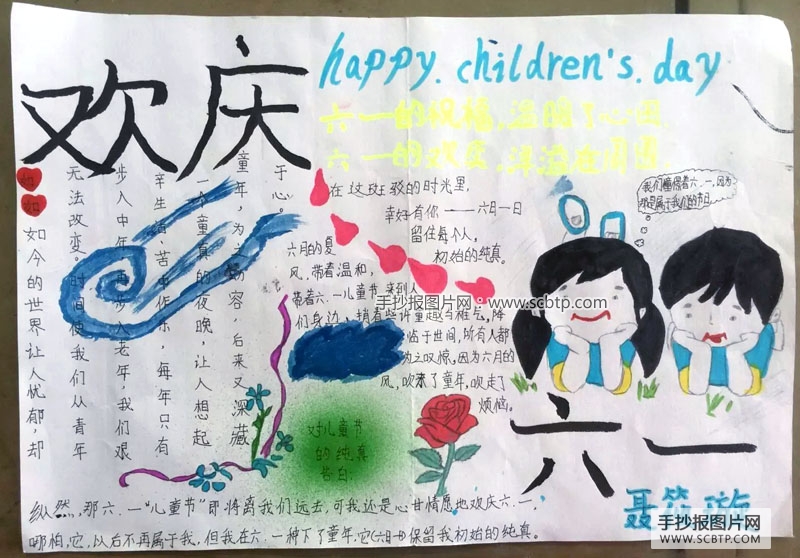 欢庆
happy. children's. day
六一的祝福,温暖了心田
六一的欢度,洋溢在周围
我们憧憬着六.一,因为
那是属于我们的节日.
在这斑驳的时光里,
幸好有你——六月一日
留住每个人,
初始的纯真。
如今的世界让人忧郁,却
无法改变。时间使我们从青年
步入中年,再步入老年,我们艰
辛生活、苦中作乐,每年只有
一个童真的夜晚,让人想起
童年,为之动容,后来又深藏
于心。
六月的夏
风,带着温和,
带着六.一儿童节,来到人
们身边,捎着些许童趣与稚气,降
临于世间,所有人都
为之叹惊,因为六月的
风,吹来了童年,吹走了
烦恼。
对儿童节
的纯真
告白
六一
纵然,那六.一“儿童节”即将离我们远去,可我还是心甘情愿地欢庆六.一,
哪怕,它,以后不再属于我,但我在六.一种下了童年,它(六一)保留我初始的纯真。
手抄报图片网:www.scbtp.com
手抄报图片网
SCBTP.COM